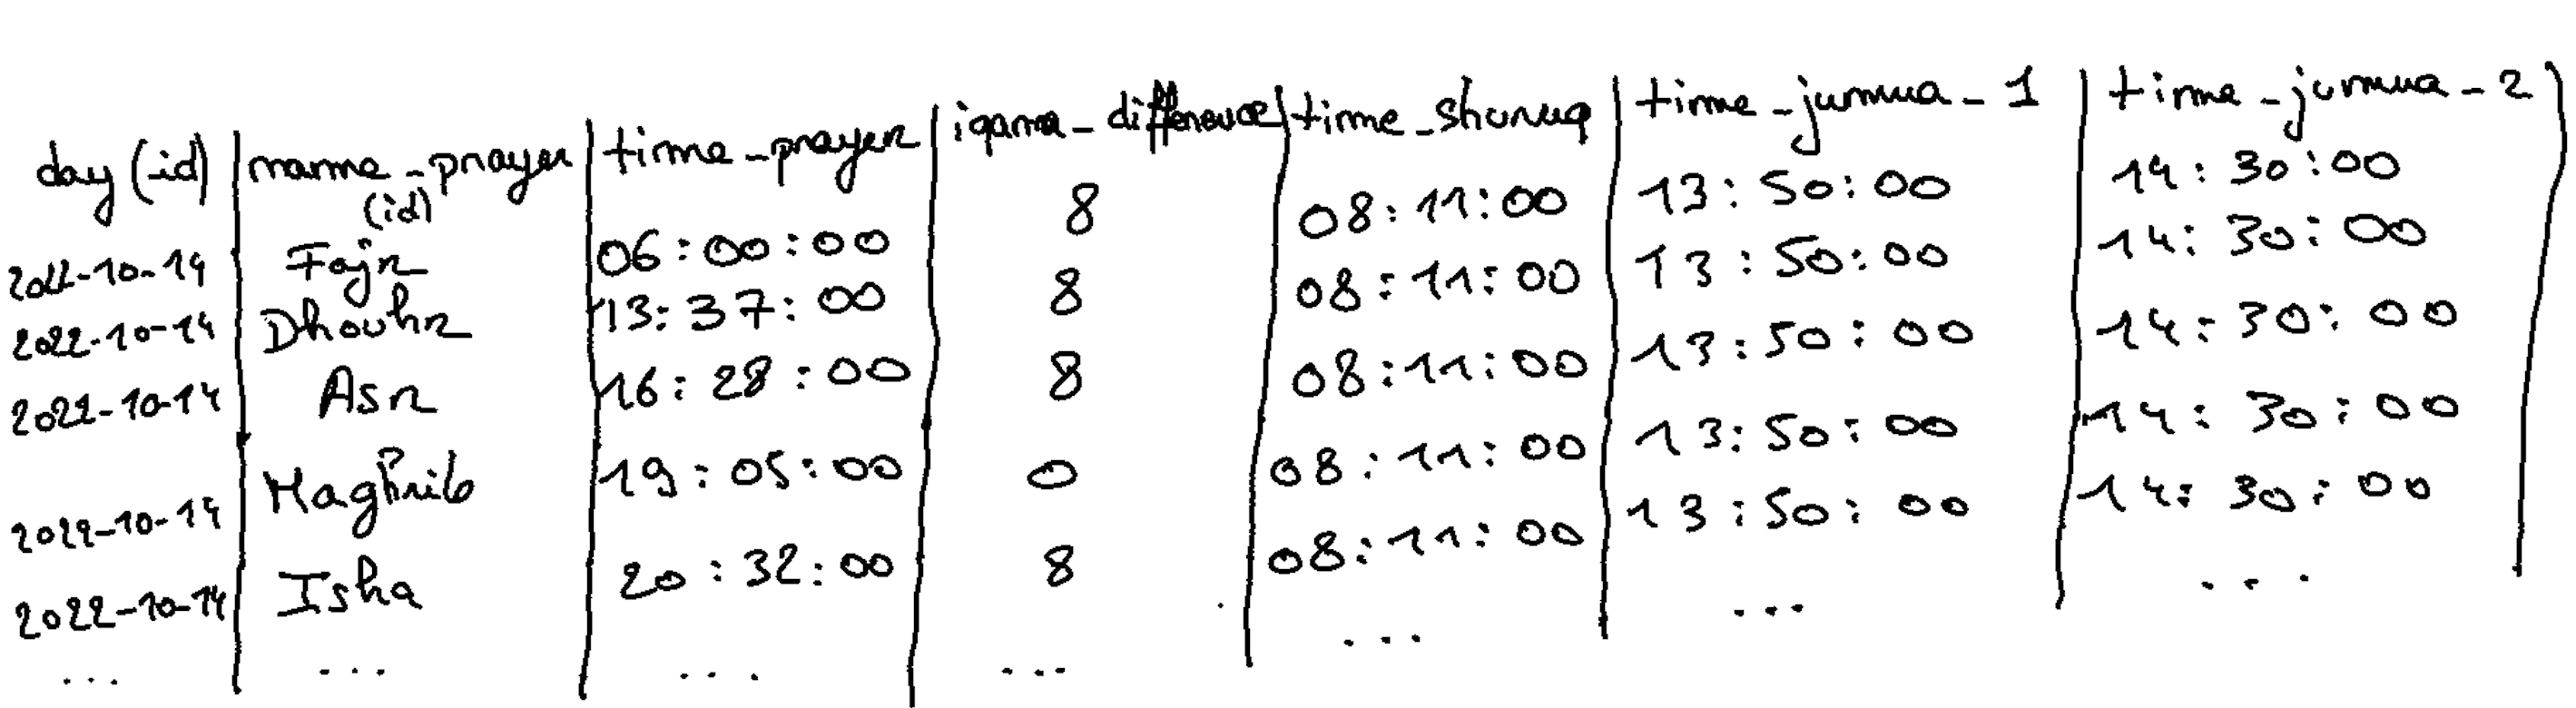 day (id) | name_prayer (id) | time_prayer | iqama_difference | time_shuruq | time_jumua_1 | time_jumua_2
2022-10-14 | Fajr | 06:00:00 | 8 | 08:11:00 | 13:50:00 | 14:30:00
2022-10-14 | Dhouhr | 13:37:00 | 8 | 08:11:00 | 13:50:00 | 14:30:00
2022-10-14 | Asr | 16:28:00 | 8 | 08:11:00 | 13:50:00 | 14:30:00
2022-10-14 | Maghrib | 19:05:00 | 0 | 08:11:00 | 13:50:00 | 14:30:00
2022-10-14 | Isha | 20:32:00 | 8 | 08:11:00 | 13:50:00 | 14:30:00
... | ... | ... | ... | ... | ... | ...